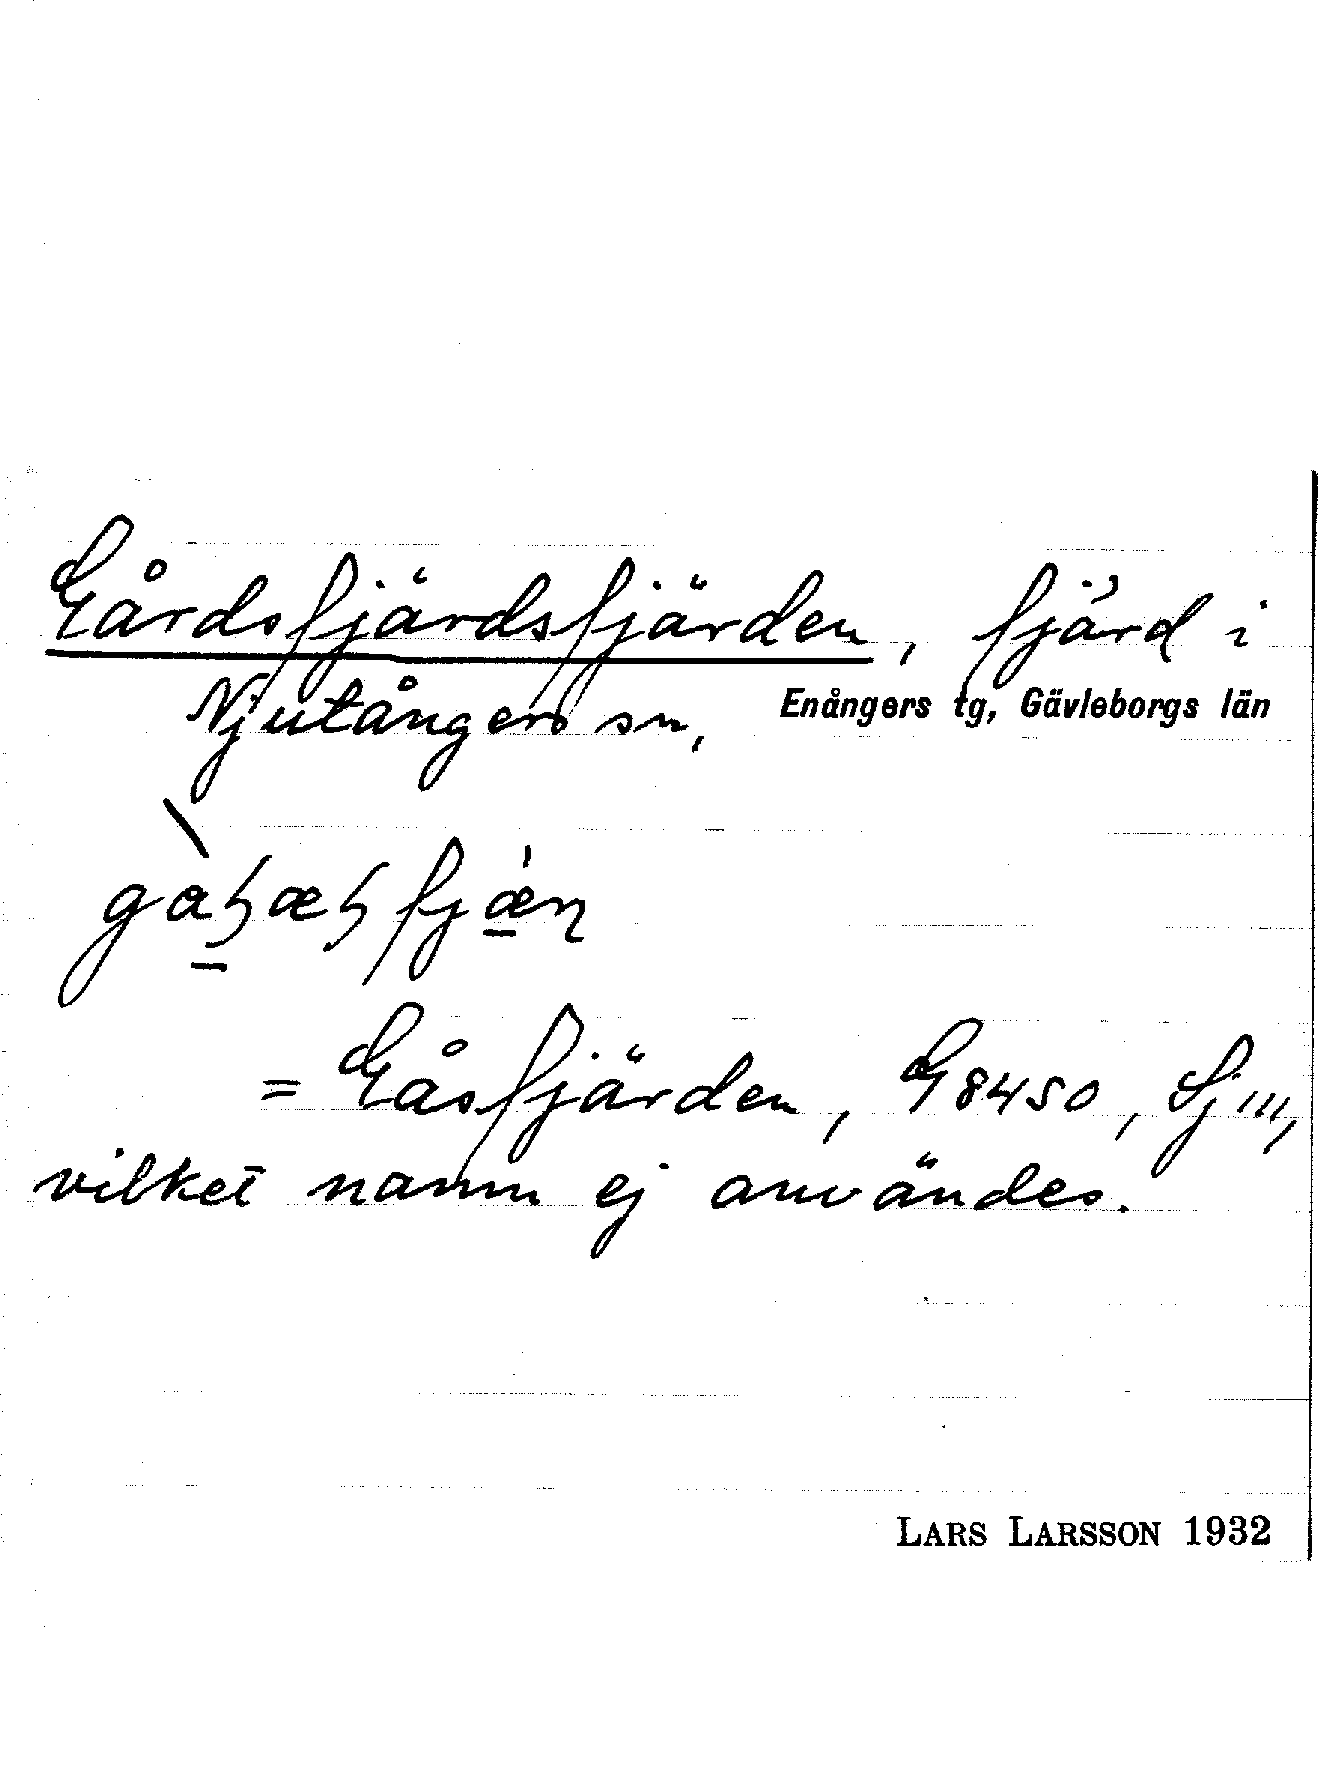 Gårdsfjärdsfjärden, fjärd i
Njutångers sn, Enångers tg, Gävleborgs län
= Gåsfjärden, G 8450, Sj III,
vilket namn ej användes.
LARS LARSSON 1932